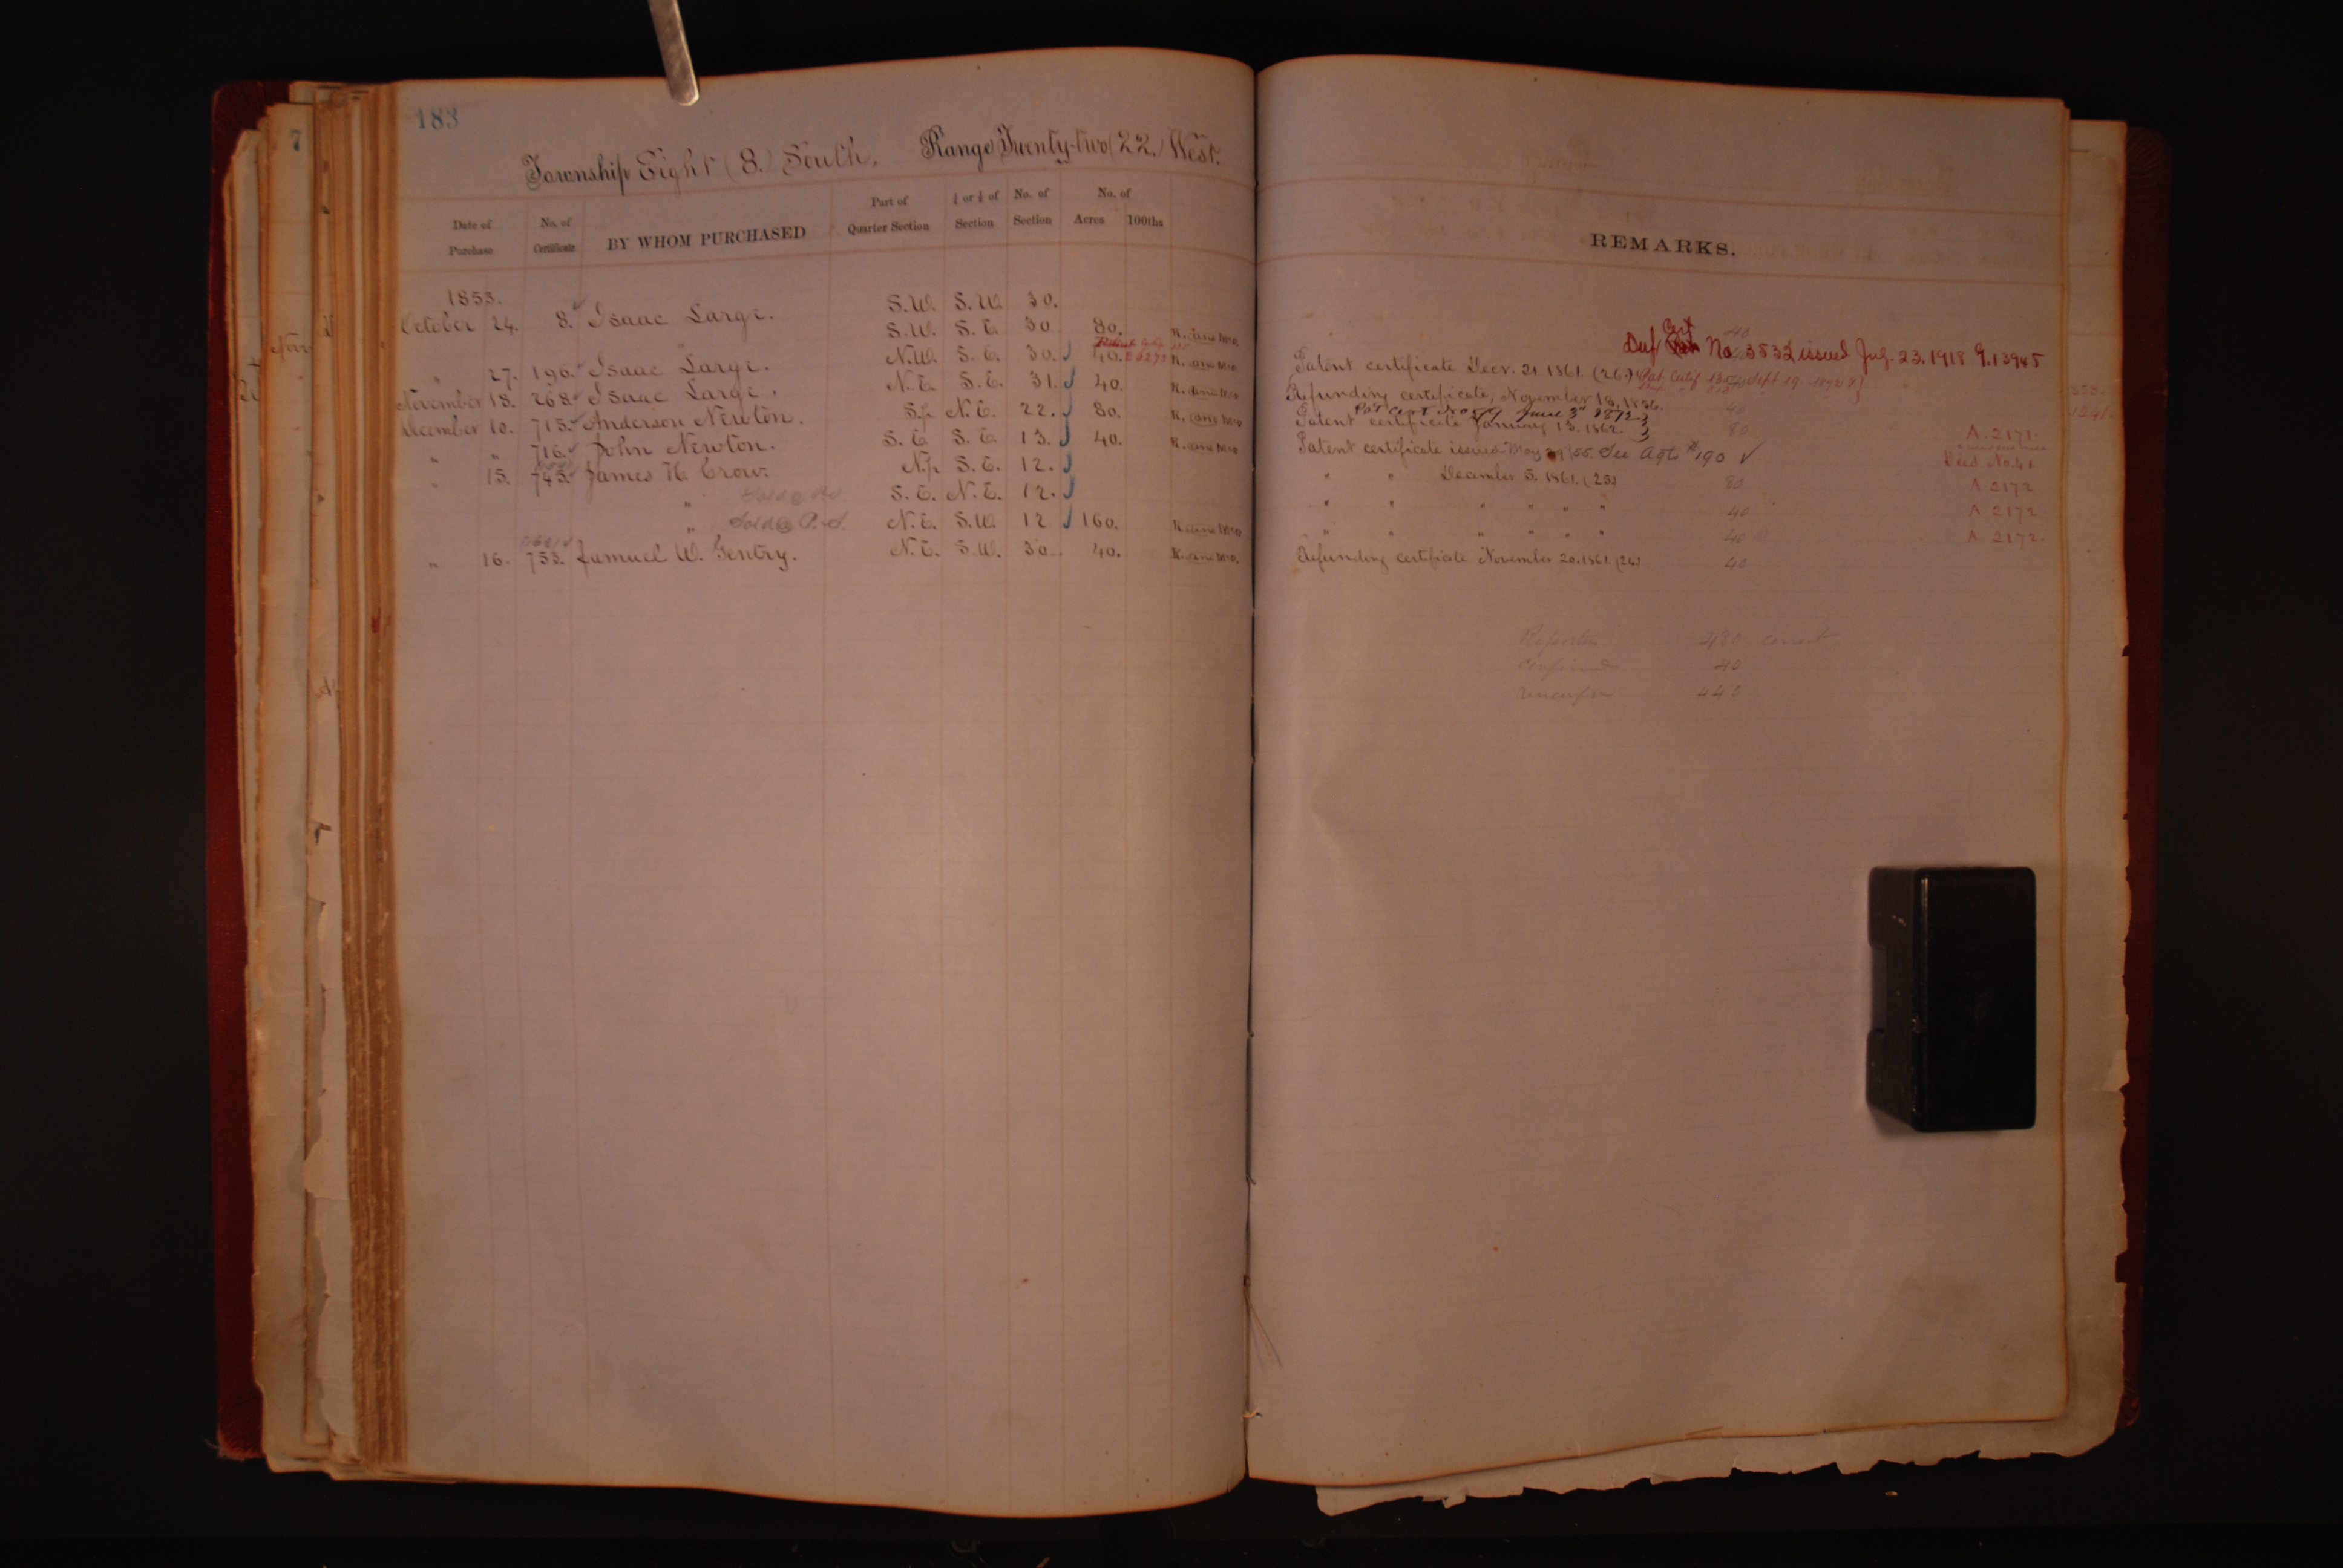 183
7
Township Eight (8.) South, Range Twenty-two (22.) West.
Date of Purchase No. of Certificate BY WHOM PURCHASED Part of Quarter Section ¼ or ½ of Section No. of Section No. of Acres 100ths
REMARKS.
1853.
October 24. 8. Isaac Large. S.W. S.W. 30.
" S.W. S.E. 30 80.
Def Cert No 3532 issued July. 23. 1918 G. 13945
" 27. 196. Isaac Large. N.W. S.E. 30. 40. Patent certificate Decr. 21. 1861. (26.) Pat. Certif Sept 19
November 18. 268. Isaac Large. N.E. S.E. 31. 40. Refunding certificate, November 18. 1856.
Pat Cert No June 3d 1872
December 10. 715. Anderson Newton. S.½ N.E. 22. 80. Patent certificate January 13. 1862. 80 A. 2171
" " 716. John Newton. S.E. S.E. 13. 40. Patent certificate issued May 29/55. See Agts #190 Deed No. 41
" 15. 743. James H. Crow. N.½ S.E. 12. " " December 5. 1861. (23) 80 A 2172
" Sold @ P.S. S.E. N.E. 12. " " " " " " 40 A 2172
" Sold @ P.S. N.E. S.W. 12 160. " " " " " " 40 A 2172.
" 16. 753. Samuel W. Gentry. N.E. S.W. 30. 40. Refunding certificate November 20. 1861. (26) 40
Reported 480 correct
Confirmed 40
440